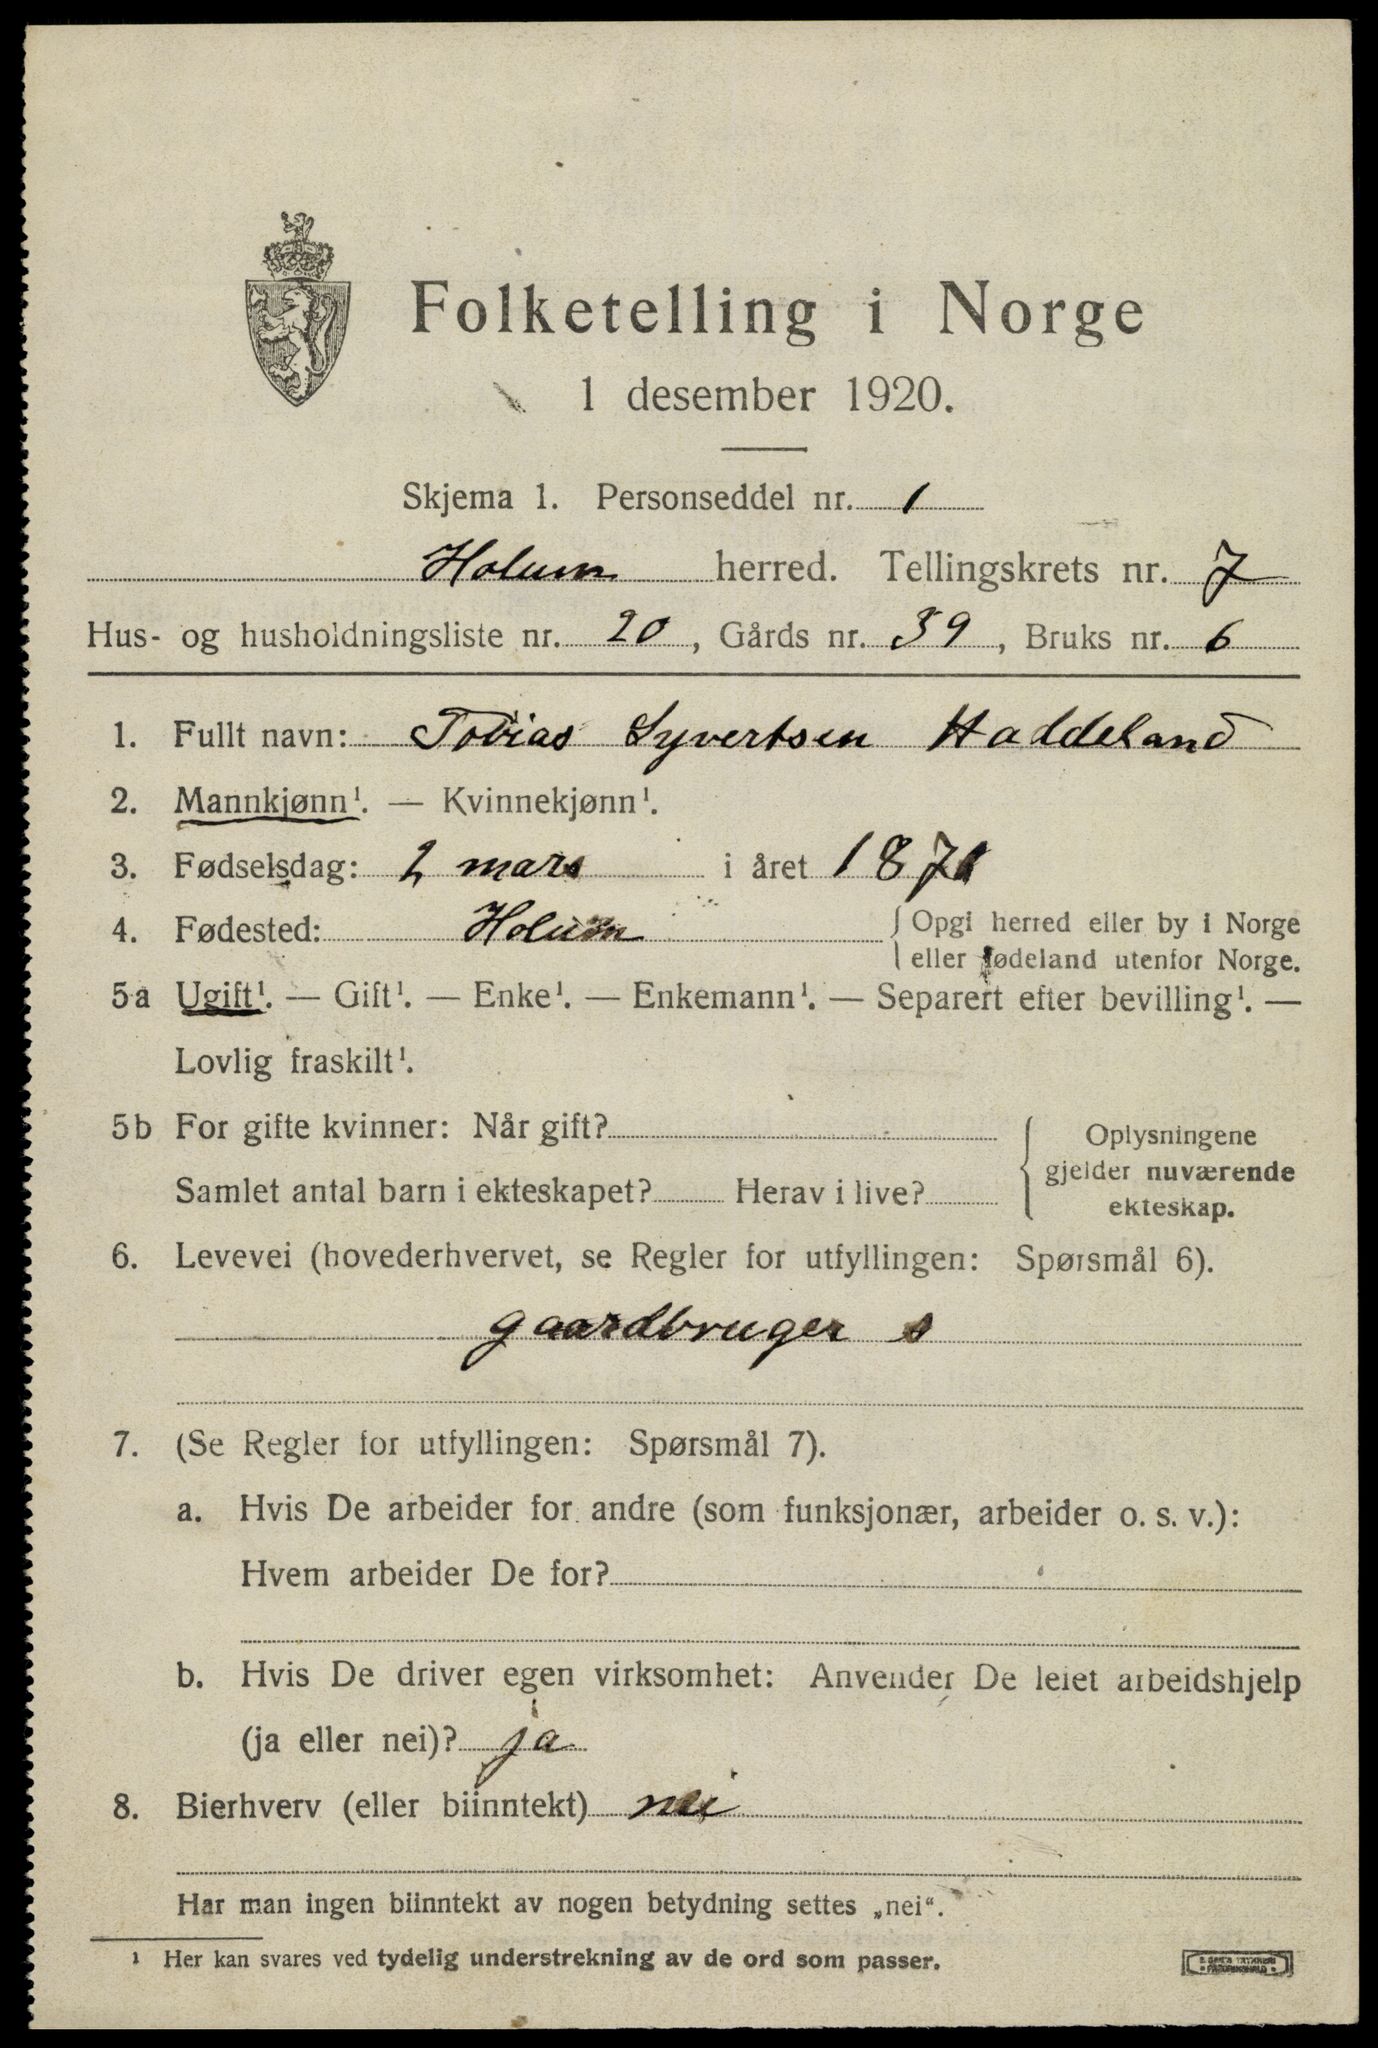 Folketelling i Norge
1 desember 1920.
Skjema 1. Personseddel nr. 1
Holum herred. Tellingskrets nr. 7
Hus- og husholdningsliste nr. 20, Gårds nr. 39, Bruks nr. 6
1. Fullt navn: Tobias Syvertsen Haddeland
2. Mannkjønn¹. — Kvinnekjønn¹.
3. Fødselsdag: 2 mars i året 1871
4. Fødested: Holum { Opgi herred eller by i Norge
eller fødeland utenfor Norge.
5a Ugift¹. — Gift¹. — Enke¹. — Enkemann¹. — Separert efter bevilling¹. —
Lovlig fraskilt¹.
5b For gifte kvinner: Når gift?
Samlet antal barn i ekteskapet? Herav i live?
{ Oplysningene
gjelder nuværende
ekteskap.
6. Levevei (hovederhvervet, se Regler for utfyllingen: Spørsmål 6).
gaardbruger s
7. (Se Regler for utfyllingen: Spørsmål 7).
a. Hvis De arbeider for andre (som funksjonær, arbeider o. s. v.):
Hvem arbeider De for?
b. Hvis De driver egen virksomhet: Anvender De leiet arbeidshjelp
(ja eller nei)? ja
8. Bierhverv (eller biinntekt) nei
Har man ingen biinntekt av nogen betydning settes „nei“.
¹ Her kan svares ved tydelig understrekning av de ord som passer.